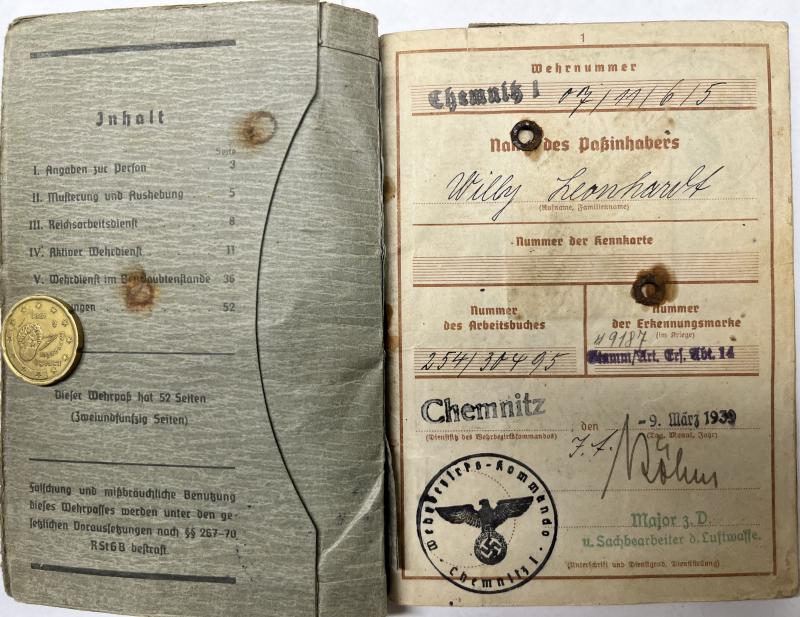 Inhalt
Seite
I. Angaben zur Person 3
II. Musterung und Aushebung 5
III. Reichsarbeitsdienst 8
IV. Aktiver Wehrdienst 11
V. Wehrdienst im Beurlaubtenstande 36
52
Dieser Wehrpaß hat 52 Seiten
(Zweiundfünfzig Seiten)
Fälschung und mißbräuchliche Benutzung
dieses Wehrpasses werden unter den ge-
setzlichen Voraussetzungen nach §§ 267-70
RStGB bestraft.
1
Wehrnummer
Chemnitz I 07/11/6/5
Name des Paßinhabers
Willy Leonhardt
(Rufname, Familienname)
Nummer der Kennkarte
Nummer
des Arbeitsbuches
254/30495
Nummer
der Erkennungsmarke
(im Kriege)
9187
Stamm/Art. Ers. Abt. 14
Chemnitz den -9. März 1939
(Dienstsitz des Wehrbezirkkommandos) (Tag, Monat, Jahr)
Böhm
Major z. D.
u. Sachbearbeiter d. Luftwaffe.
(Unterschrift und Dienstgrad, Dienststellung)
Wehrbezirks-Kommando
Chemnitz I